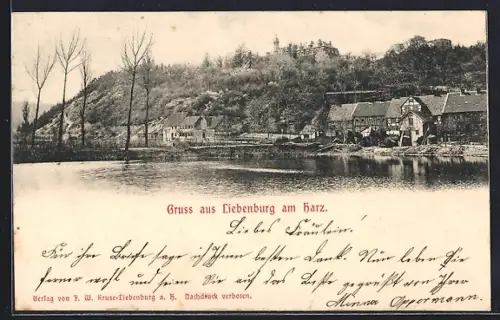 Gruss aus Liebenburg am Harz.
Liebes Fräulein!
Für ihre Briefe sage ich Ihnen besten Dank. Nun leben Sie
ferner wohl und seien Sie auf das Beste gegrüßt von Ihrer
Minna Oppermann.
Verlag von F. W. Kruse-Liebenburg a. H. Nachdruck verboten.